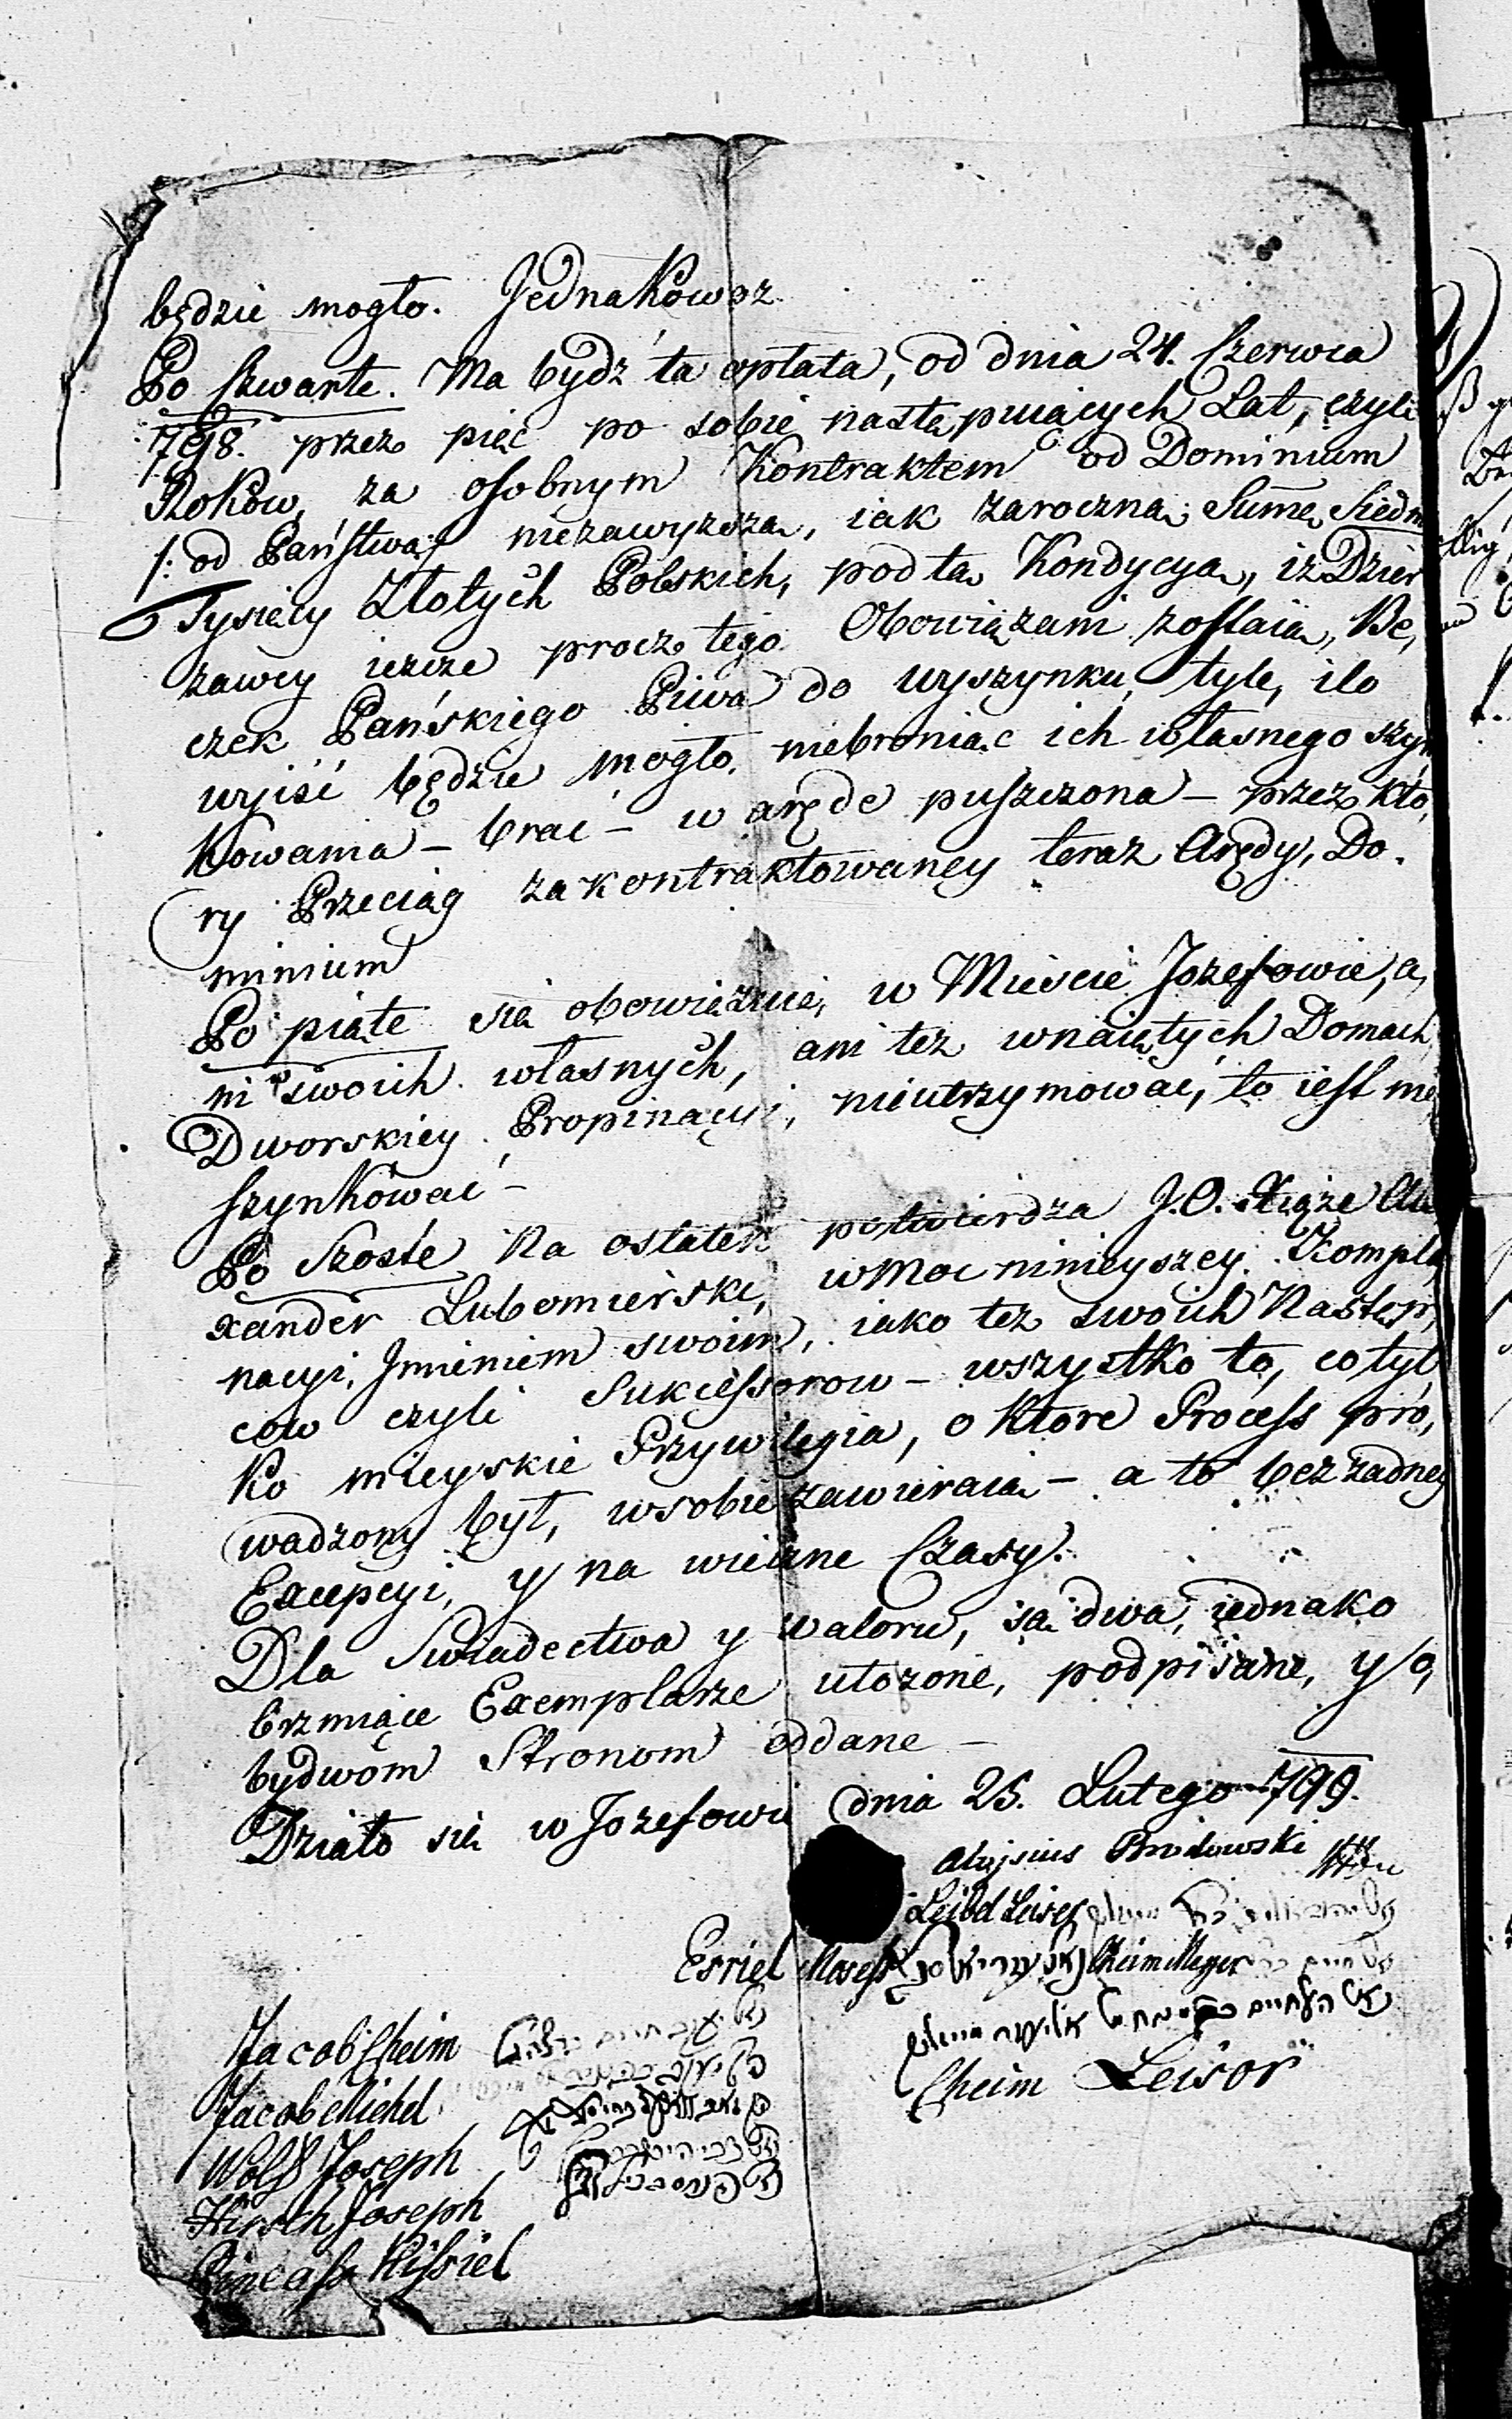 będzie mogło. Jednakowoz
Po Czwarte. Ma bydź ta opłata, od dnia 24. Czerwca
798. przez pięć po sobie następuiących Lat, czyli
Roków, za osobnym Kontraktem od Dominium
/: od Państwa :/ niezawyższą, iak zaroczną Sumę Siedm
Tysięcy Złotych Polskich, pod tą Kondycyą, iż Dzier
zawcy ieszcze procz tego Obowiązani zostaią, Be,
czek Pańskiego Piwa do wyszynku, tyle, ilo
wyiść będzie mogło, niebroniąc ich własnego szyn
kowania – brać – w arędę puszczona – przez któ,
ry Przeciąg zakontraktowaney teraz Arędy, Do.
minium
Po piąte się obowięzuie, w Mieście Jozefowie, a,
ni w swoich własnych, ani też wnaiętych Domach,
Dworskiey Propinacyi, nieutrzymować, to iest nie
szynkować –
Po Szoste Na ostatek potwierdza J.O. Xiąże Ale
xander Lubomierski, wMoc ninieyszey Kompla
nacyi, Jmieniem swoim, iako też swoich Następ,
ców czyli Sukcessorow – wszystko to, co tyl
ko mieyskie Przywilegia, o które Process pro,
wadzony był, wsobie zawieraią – a to bez żadney
Excepcyi, y na wieczne Czasy.
Dla Swiadectwa y waloru, są dwa, iednako
brzmiące Exemplarze ułozone, podpisane, y o,
bydwóm Stronom oddane –
Działo się w Jozefowie dnia 25. Lutego 799.
Aloysius Brodowski
Leibel Leiser
Esriel Moses Cheim Meyer
Jacob Cheim
Cheim Leisor
Jacob Michel
Wolf Joseph
Hirsch Joseph
Pincass Kissiel